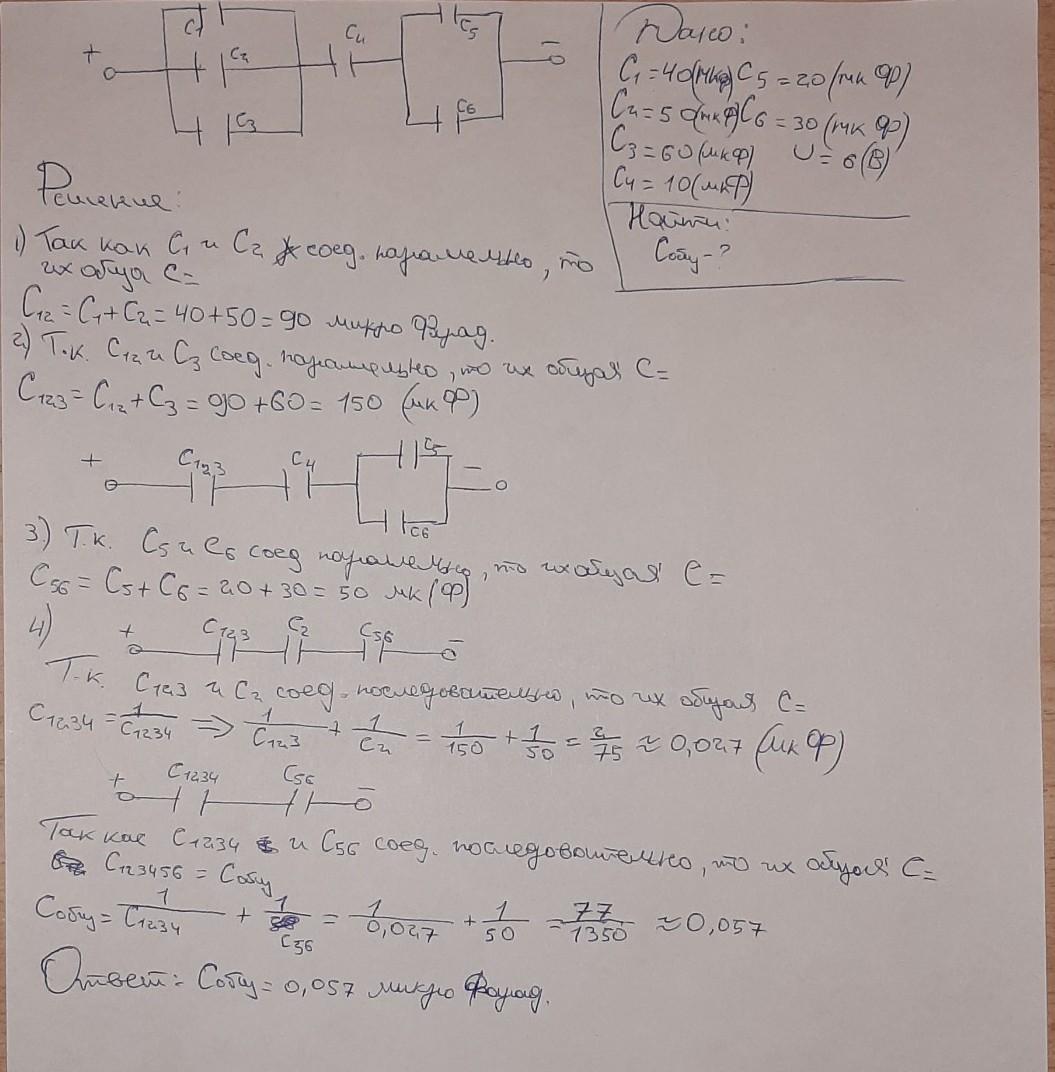 C1
C2
C3
C4
C5
C6
+
−
Дано:
C1=40(мкф) C5=20(мкФ)
C2=50(мкф) C6=30(мкФ)
C3=60(мкФ) U=6(В)
C4=10(мкФ)
Найти:
Cобщ-?
Решение:
1) Так как C1 и C2 соед. паралельно, то
их общая C=
C12=C1+C2=40+50=90 микро Фарад.
2) Т.к. C12 и C3 соед. паралельно, то их общая C=
C123=C12+C3=90+60=150 (мкФ)
+ C123 C4 C5 −
C6
3.) Т.к. C5 и C6 соед паралельно, то их общая C=
C56=C5+C6=20+30=50 мк(Ф)
4) + C123 C2 C56 −
Т.к. C123 и C2 соед. последовательно, то их общая C=
C1234=1/C1234 ⇒ 1/C123 + 1/C2 = 1/150 + 1/50 = 2/75 ≈ 0,027 (мкФ)
+ C1234 C56 −
Так как C1234 и C56 соед. последовательно, то их общая C=
C123456=Cобщ
Cобщ=1/C1234 + 1/C56 = 1/0,027 + 1/50 = 77/1350 ≈ 0,057
Ответ: Cобщ=0,057 микро Фарад.